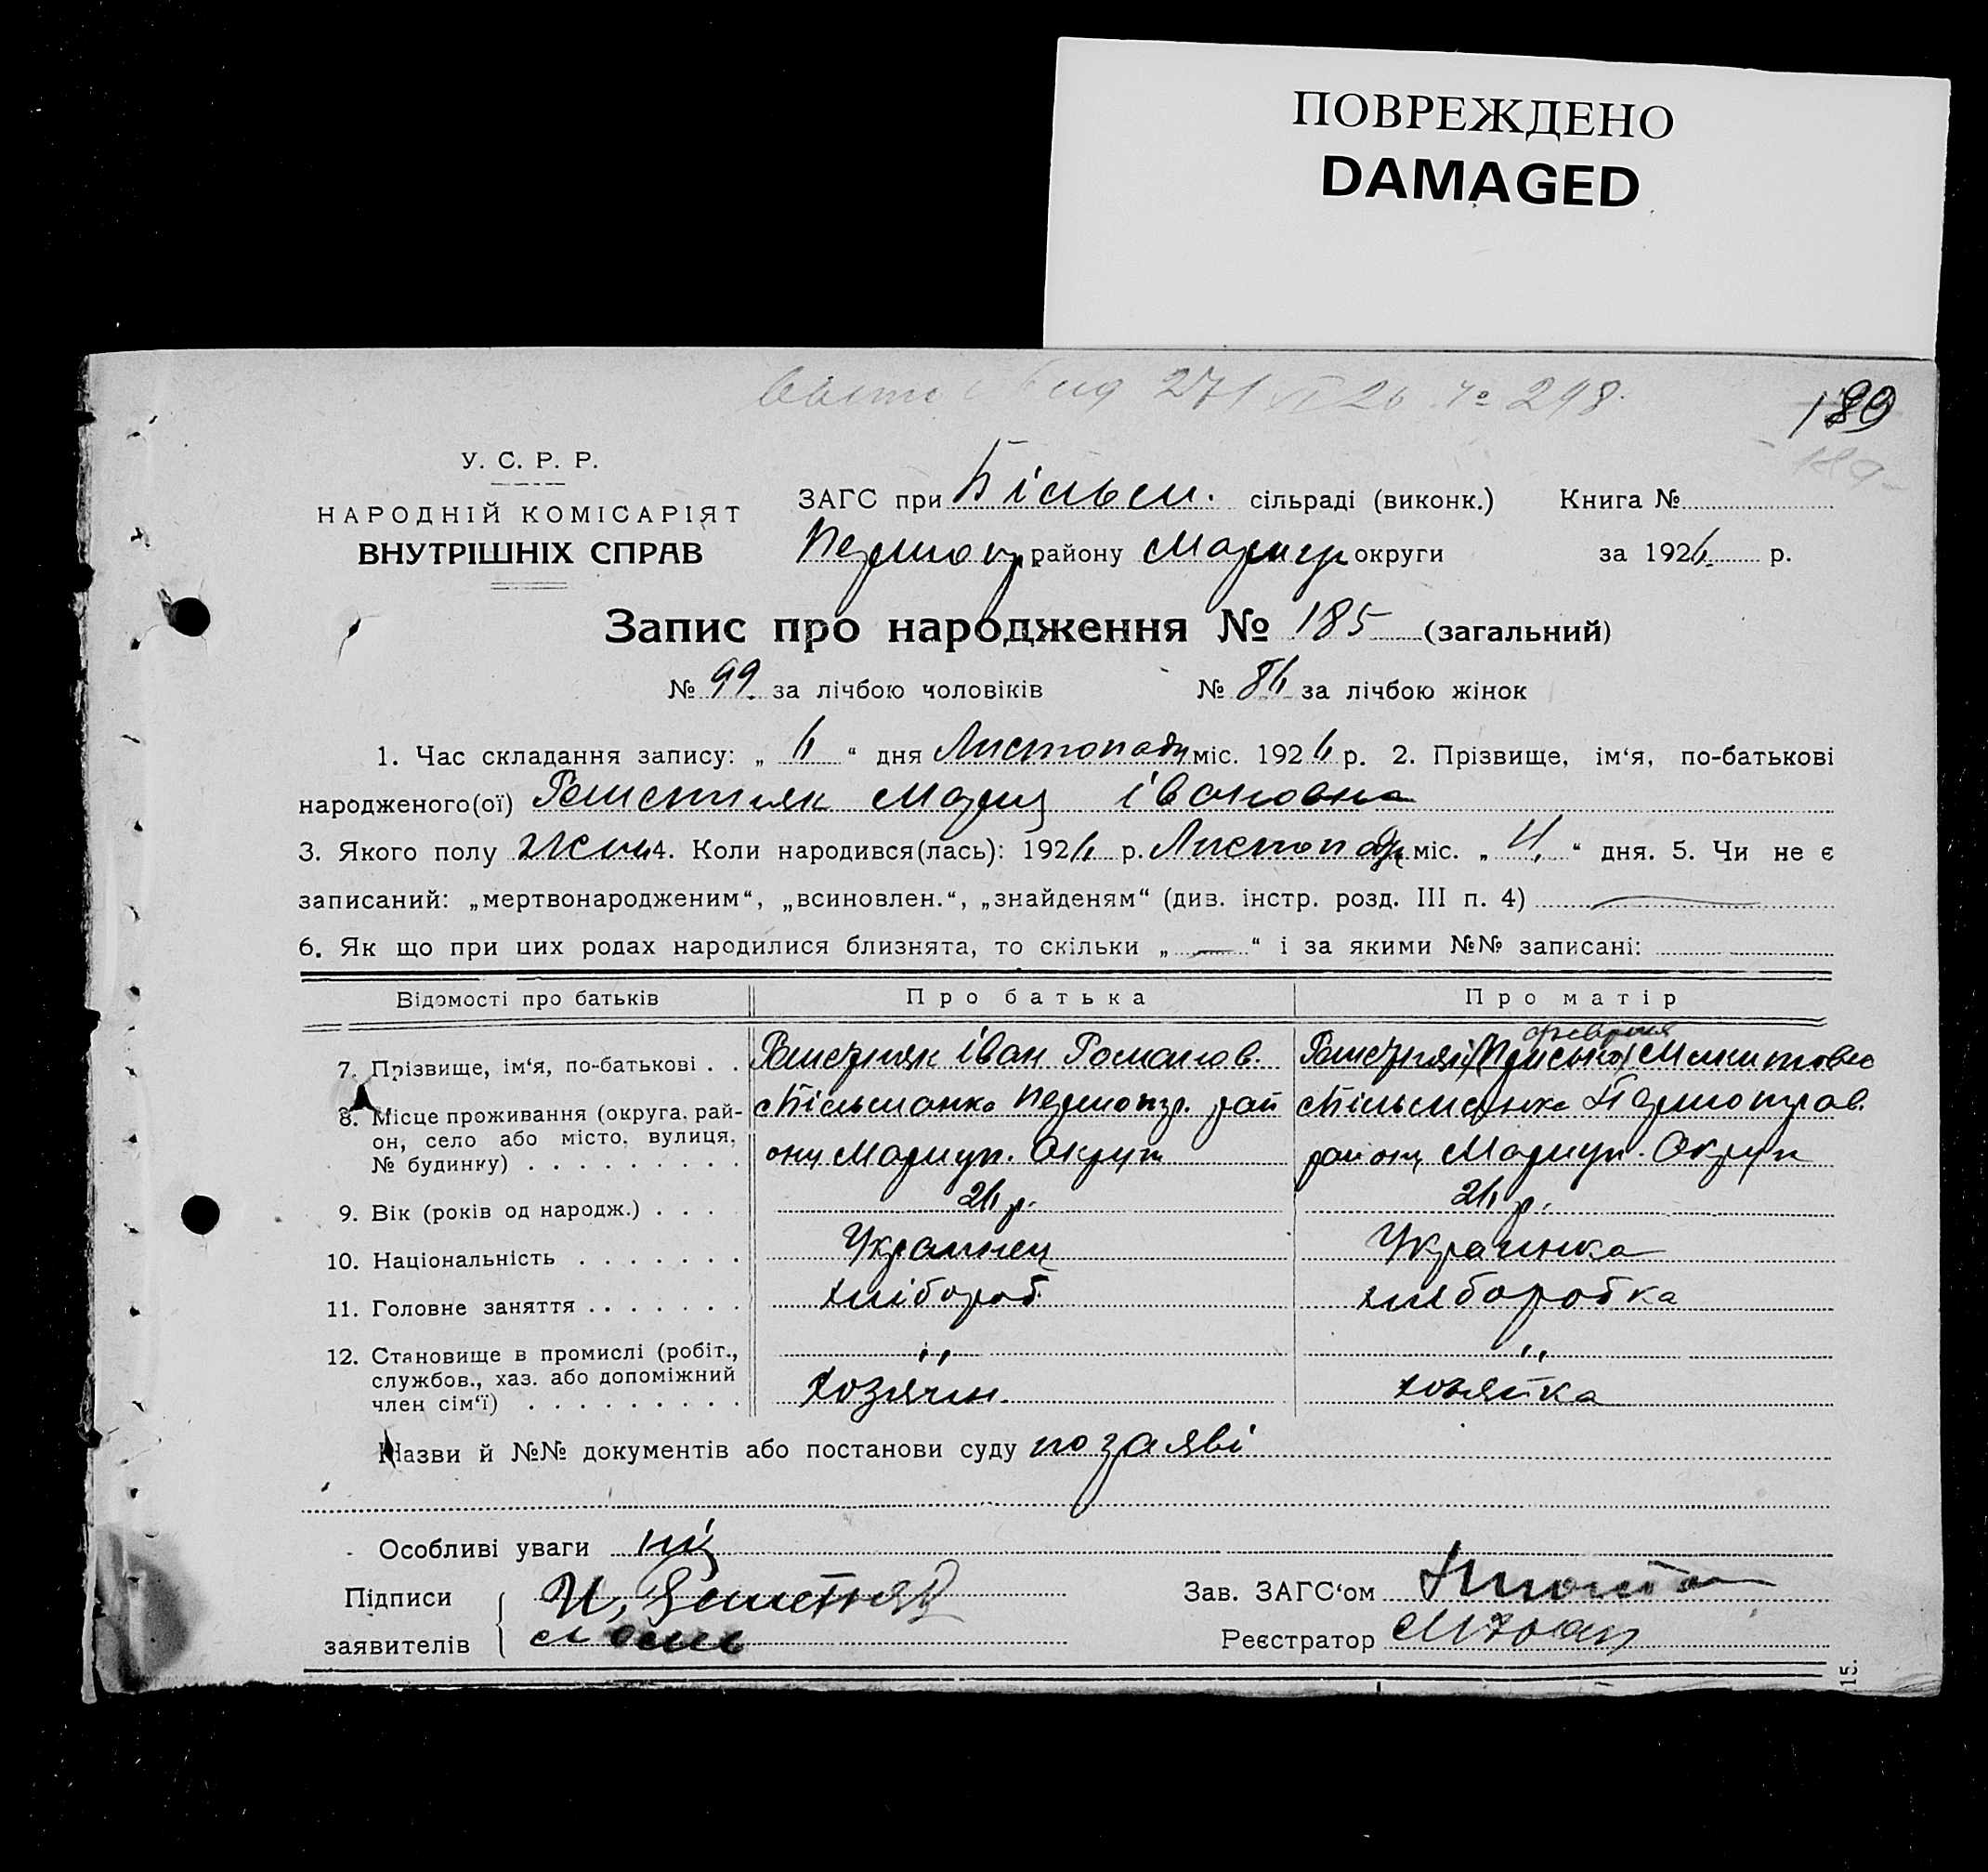 ПОВРЕЖДЕНО
DAMAGED
271 VI 26 № 298.
189
189
У. С. Р. Р.
НАРОДНІЙ КОМІСАРІЯТ
ВНУТРІШНІХ СПРАВ
ЗАГС при Більм. сільраді (виконк.) Книга №
Першотр. району Маріуп округи за 1926 р.
Запис про народження № 185 (загальний)
№ 99 за лічбою чоловіків № 86 за лічбою жінок
1. Час складання запису: „ 6 “ дня Листопаду міс. 1926 р. 2. Прізвище, ім‘я, по-батькові
народженого(ої) Решетняк Мария івановна
3. Якого полу жен 4. Коли народився(лась): 1926 р. Листопаду міс. „ 4 “ дня. 5. Чи не є
записаний: „мертвонародженим“, „всиновлен.“, „знайденям“ (див. інстр. розд. III п. 4)
6. Як що при цих родах народилися близнята, то скільки „ — “ і за якими №№ записані:
Відомості про батьків Про батька Про матір
7. Прізвище, ім‘я, по-батькові . . Решетняк Іван Романов. Решетняк
8. Місце проживання (округа, рай- с Більманка Першотр. рай с Більманка Першотрав.
он, село або місто, вулиця, ону Мариуп. Округи району Мариуп. Округи
№ будинку) . . . . . . . . .
9. Вік (років од народж.) . . . 26 р. 26 р.
10. Національність . . . . . . . Украинец Украинка
11. Головне заняття . . . . . . . хлібороб хлиборобка
12. Становище в промислі (робіт., „ „
службов., хаз. або допоміжний хозяин. хозяйка
член сім‘ї) . . . . . . . . .
Назви й №№ документів або постанови суду по заяві
Особливі уваги
Підписи И. Решетняк Зав. ЗАГС‘ом
заявителів Реєстратор
15.